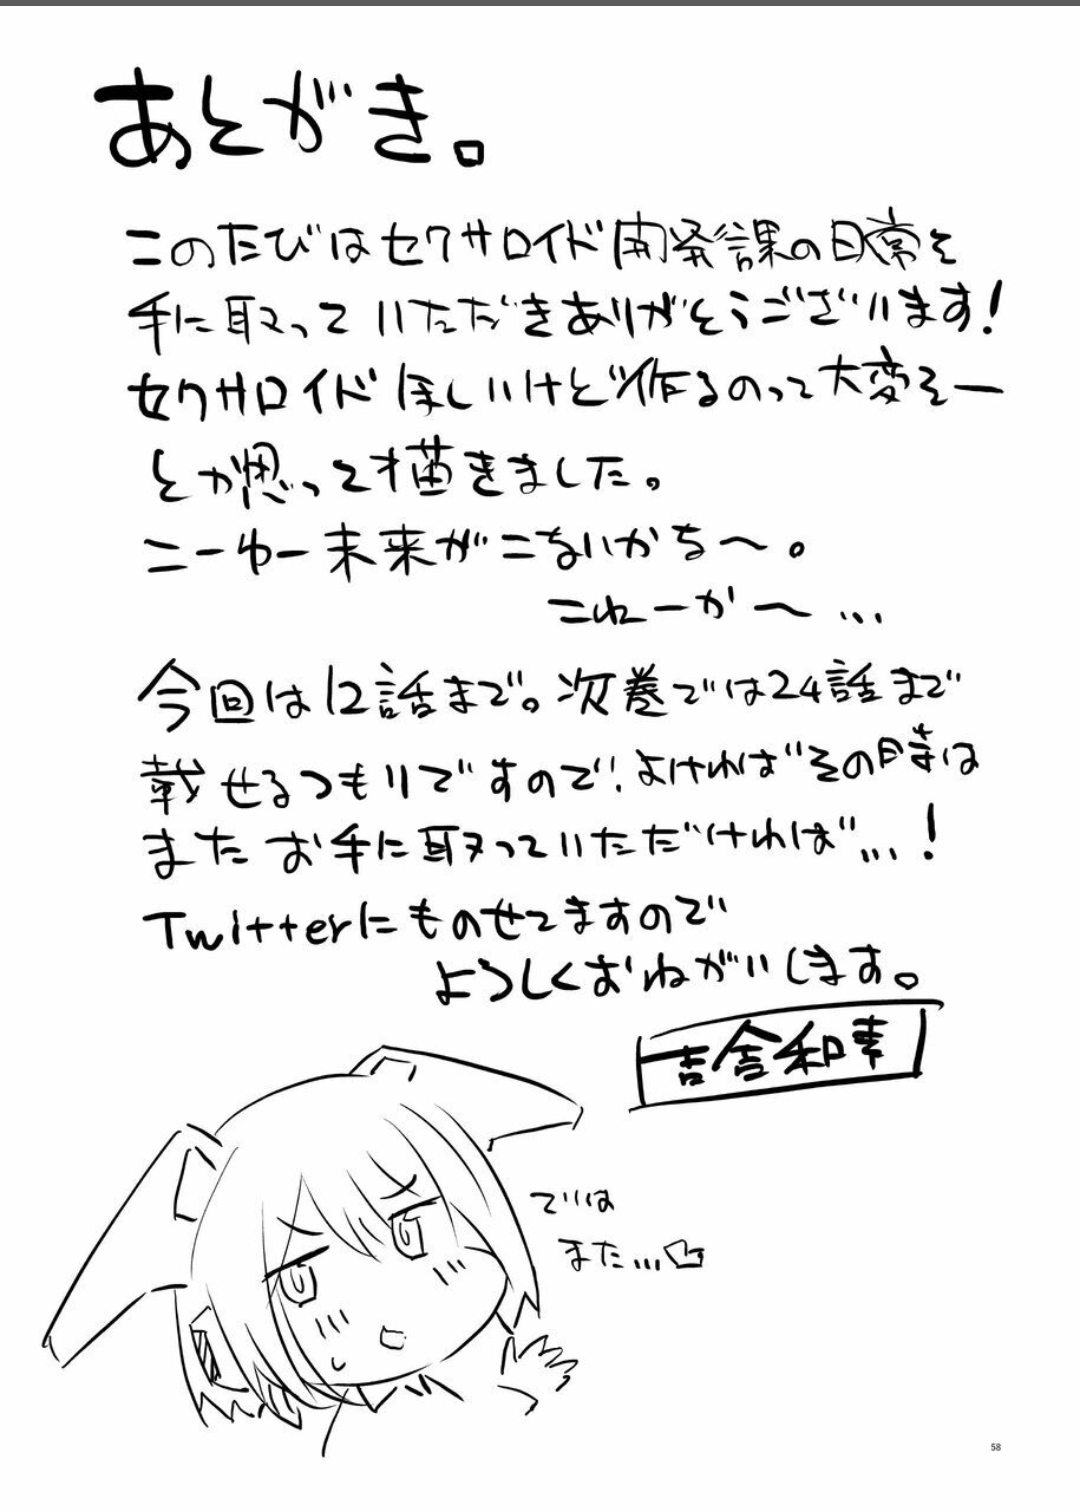 あとがき。
このたびはセクサロイド開発課の日常を
手に取っていただきありがとうございます!
セクサロイドほしいけど作るのって大変そー
とか思って描きました。
こーゆー未来がこないかな〜。
こねーか〜…
今回は12話まで。次巻では24話まで
載せるつもりですので、よければその時は
またお手に取っていただければ…!
Twitterにものせてますので
よろしくおねがいします。
吉舎和幸
では
また…
58